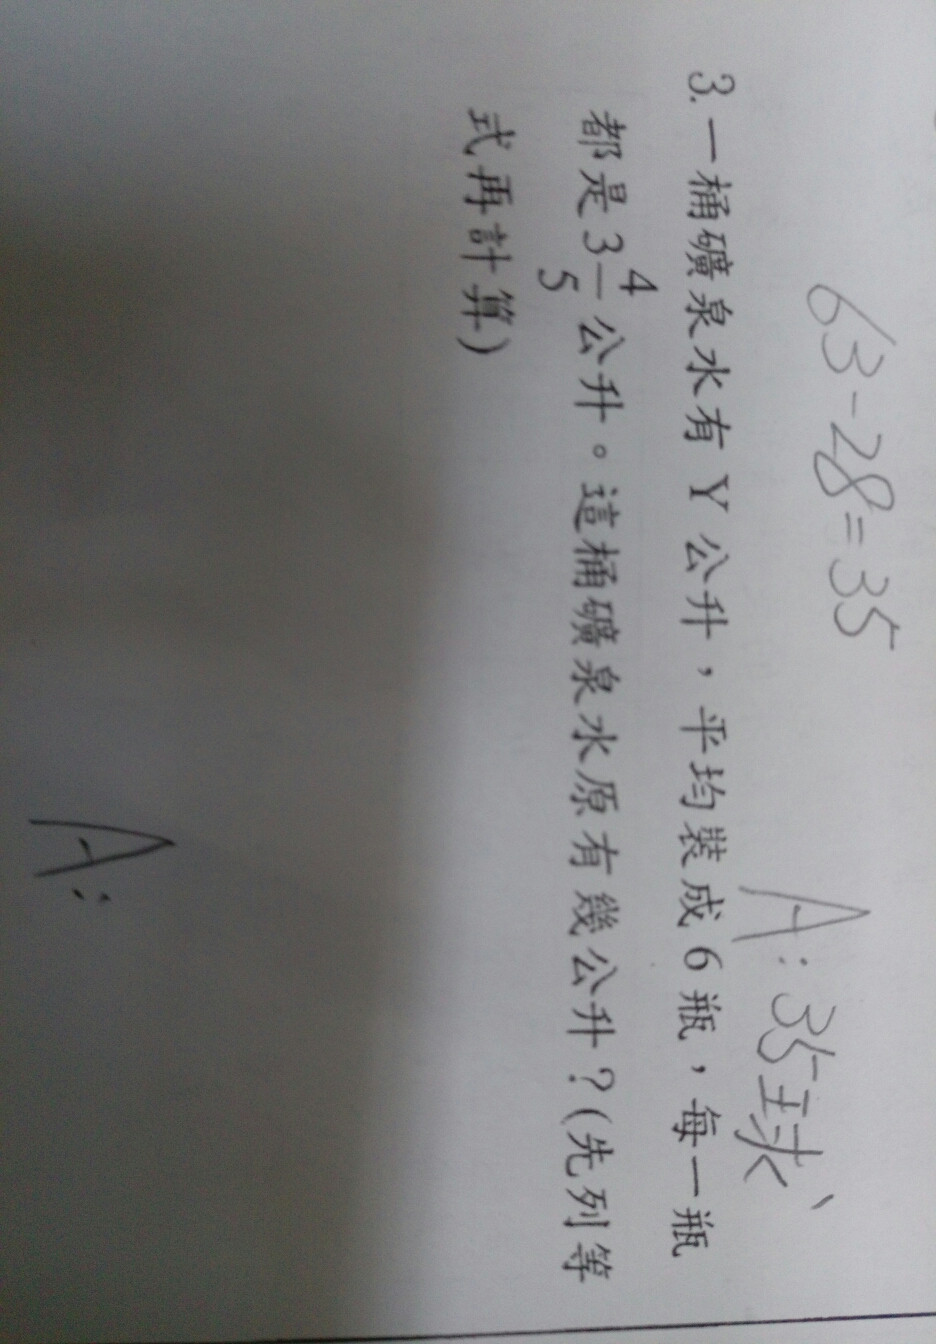 63-28=35
A:35球
3.一桶礦泉水有Y公升,平均裝成6瓶,每一瓶
都是3 4/5 公升。這桶礦泉水原有幾公升?(先列等
式再計算)
A: